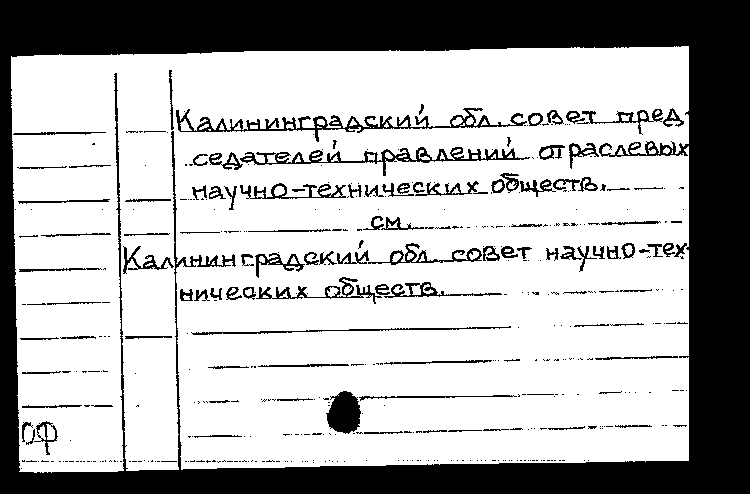 Калининградский обл. совет пред-
седателей правлений отраслевых
научно-технических обществ.
см.
Калининградский обл. совет научно-тех-
нических обществ.
ОФ